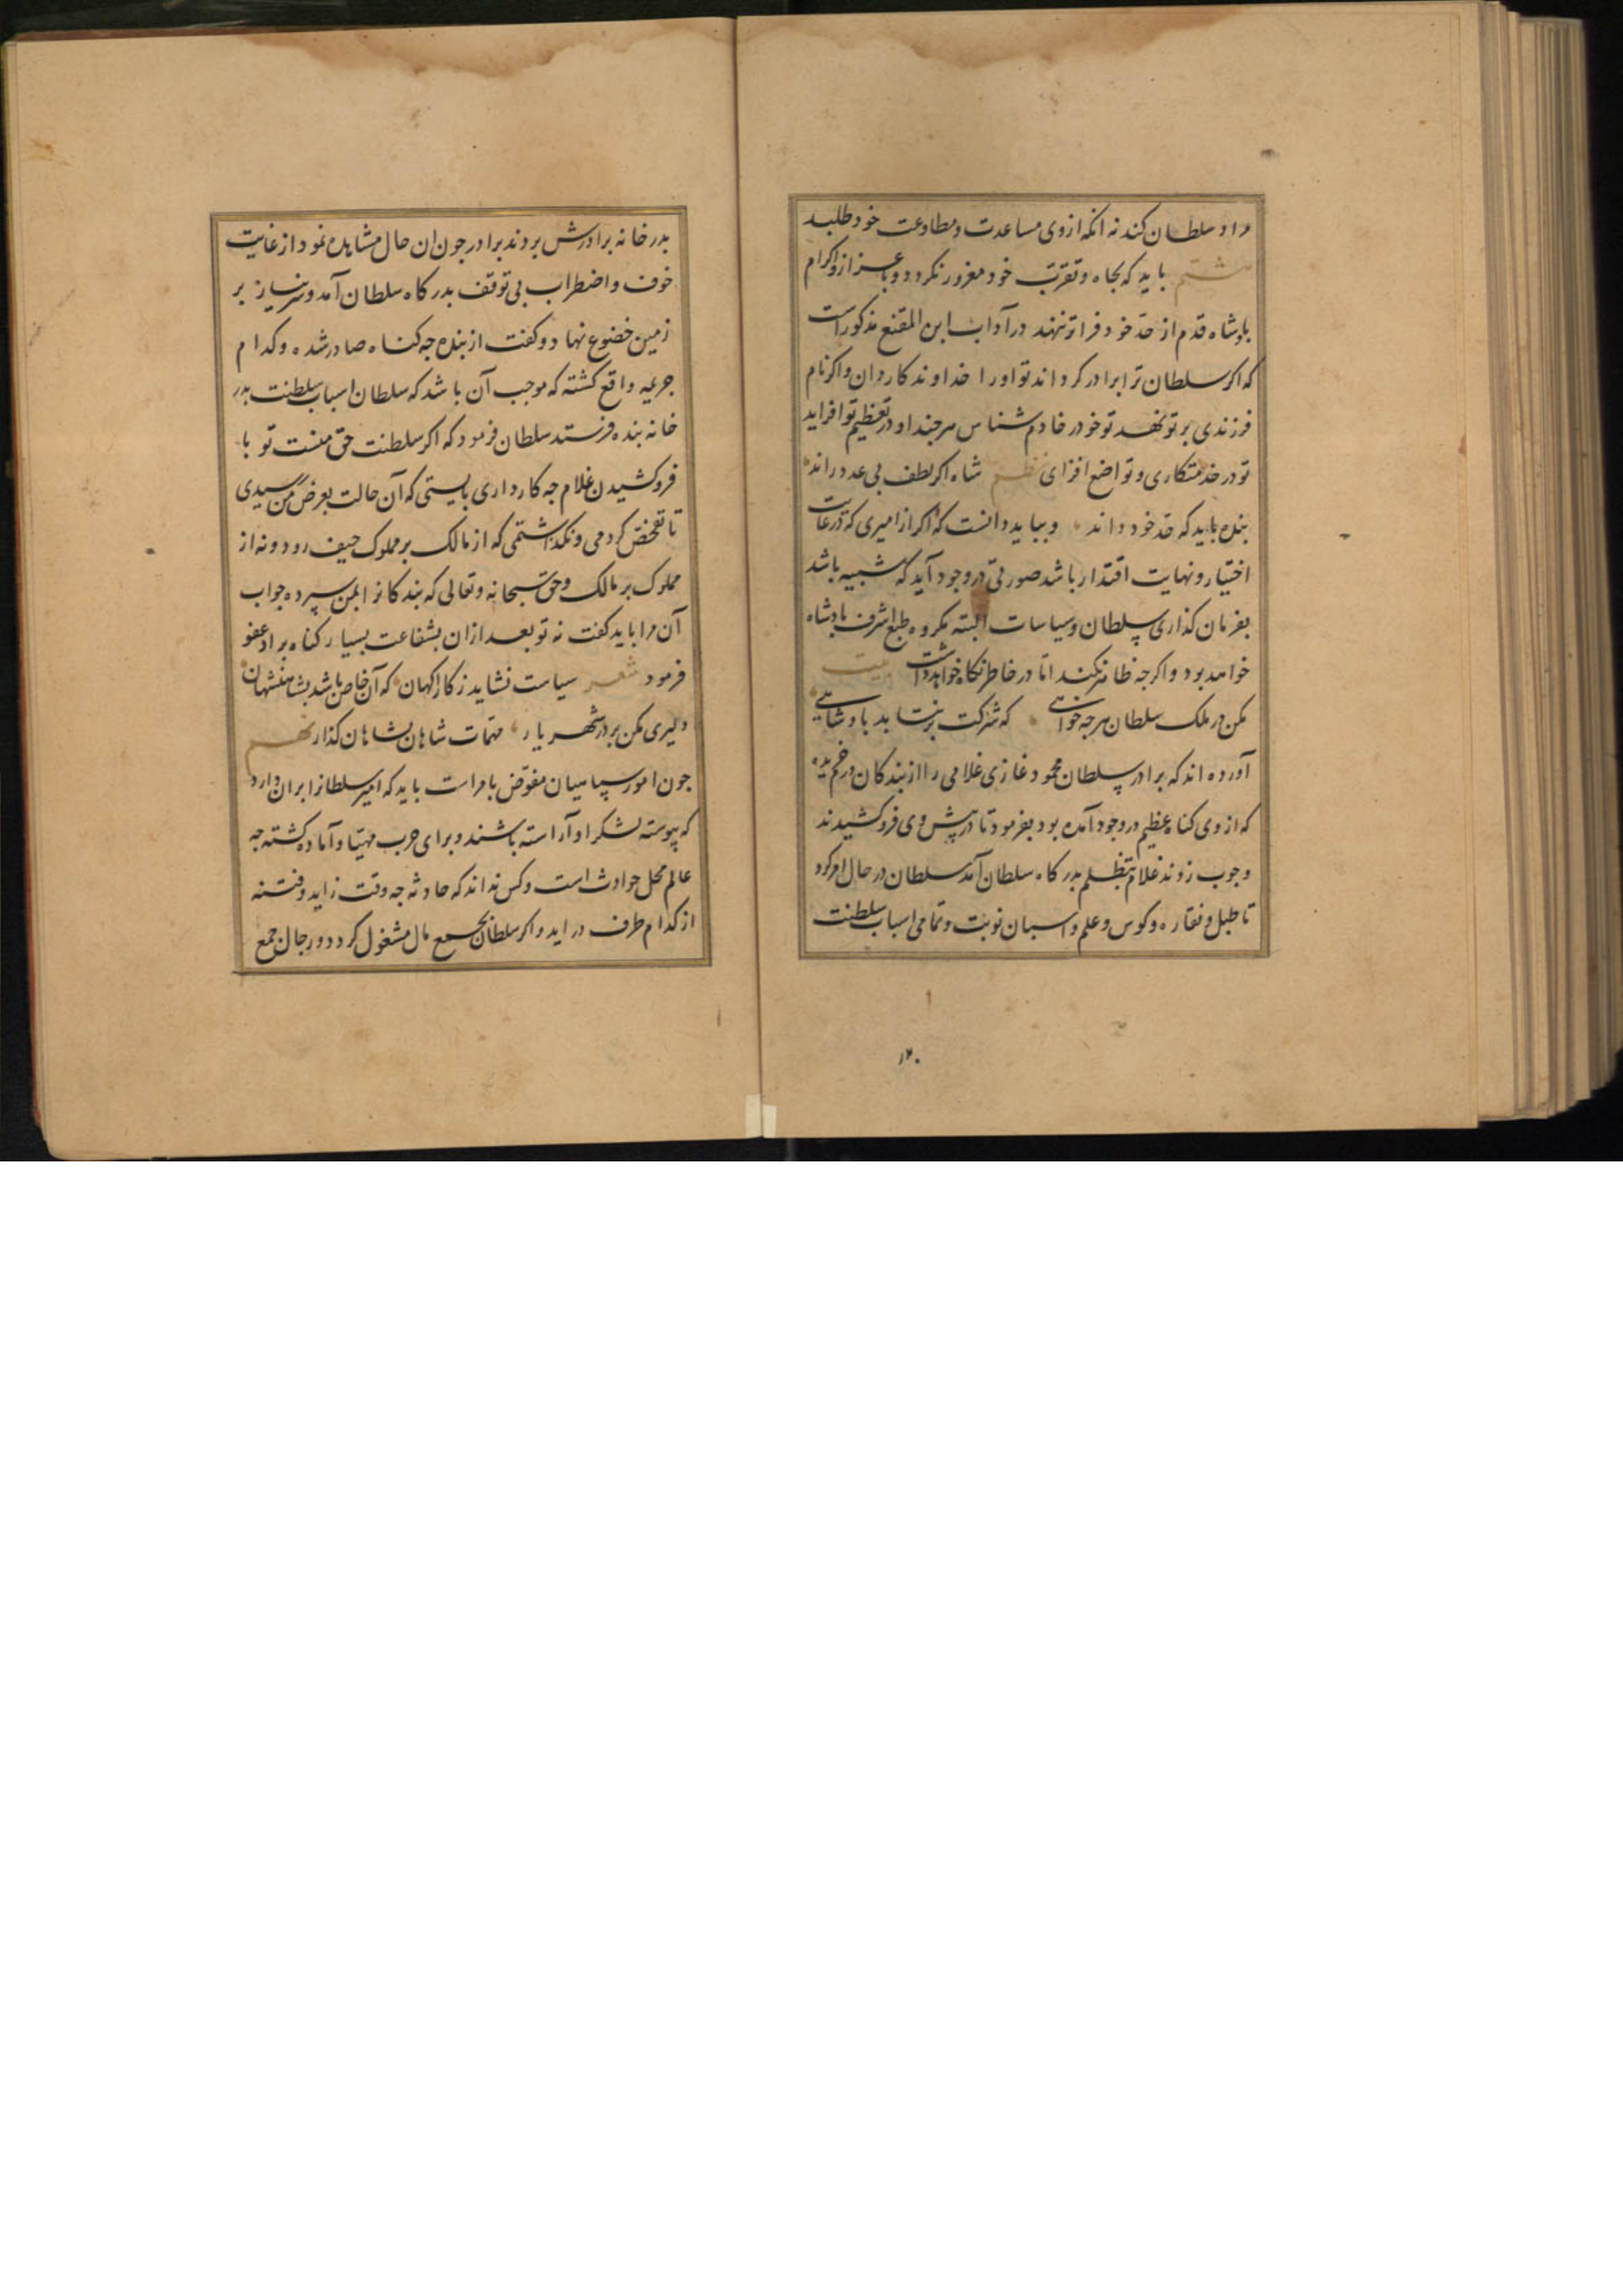 مراد سلطان کند نه انکه ازوی مساعدت و مطاوعت خود طلبد
هشتم باید که بجاه و تقرب خود مغرور نکردد و باعزاز و اکرام
بادشاه قدم از حدّ خود فراتر ننهد در آداب ابن المقنع مذکور است
که اکر سلطان ترا برادر کرداند تو او را خداوند کار دان و اکر نام
فرزندی بر تو نهد تو خود را خادم شناس هر جند او در تعظیم تو افزاید
تو در خدمتکاری و تواضع افزای نظم شاه اکر لطف بی عدد راند
بنده باید که حدّ خود داند و بباید دانست که اکر از امیری که در غایت
اختیار و نهایت اقتدار باشد صورتی در وجود آید که شبیه باشد
بفرمان کذاری سلطان و سیاسات البته مکروه طبع اشرف بادشاه
خواهد بود و اکر جه ظاهر نکند امّا در خاطر نکاه خواهد داشت بیت
مکن در ملک سلطان هر جه خواهی که شرکت بر نتابد بادشاهی
آورده اند که برادر سلطان محمود غازی غلامی را از بندکان درخرم
که از وی کناه عظیم در وجود آمده بود بفرمود تا در پیش وی فروکشیدند
و جوب زدند غلام بتظلم بدرکاه سلطان آمد سلطان در حال امر کرد
تا طبل و نقاره و کوس و علم و اسبان نوبت و تمامی اسباب سلطنت
۱۲۰
بدر خانه برادرش بردند برادر جون ان حال مشاهده نمود از غایت
خوف و اضطراب بی توقف بدرکاه سلطان آمد و سر نیاز بر
زمین خضوع نهاد و کفت از بنده جه کناه صادر شده و کدام
جریمه واقع کشته که موجب آن باشد که سلطان اسباب سلطنت بدر
خانه بنده فرستد سلطان فرمود که اکر سلطنت حق منست تو با
فروکشیدن غلام جه کار داری بایستی که آن حالت بعرض من رسیدی
تا تفحص کردمی و نکذاشتمی که از مالک بر مملوک حیف رود و نه از
مملوک بر مالک و حق سبحانه و تعالی که بندکانرا بمن سپرده جواب
آن مرا باید کفت نه تو بعد از ان بشفاعت بسیار کناه برادر عفو
فرمود شعر سیاست نشاید ز کاراکهان که آن خاص باشد بشاهنشهان
دلیری مکن بر در شهریار مهمّات شاهان بشاهان کذار نهم
جون امور سپاهیان مفوّض بامراست باید که امیر سلطانرا بران دارد
که پیوسته لشکر او آراسته باشند و برای حرب مهیّا و آماده کشته جه
عالم محل حوادث است و کس نداند که حادثه جه وقت زاید و فتنه
از کدام طرف در اید و اکر سلطان بجمع مال مشغول کردد و رجال جمع